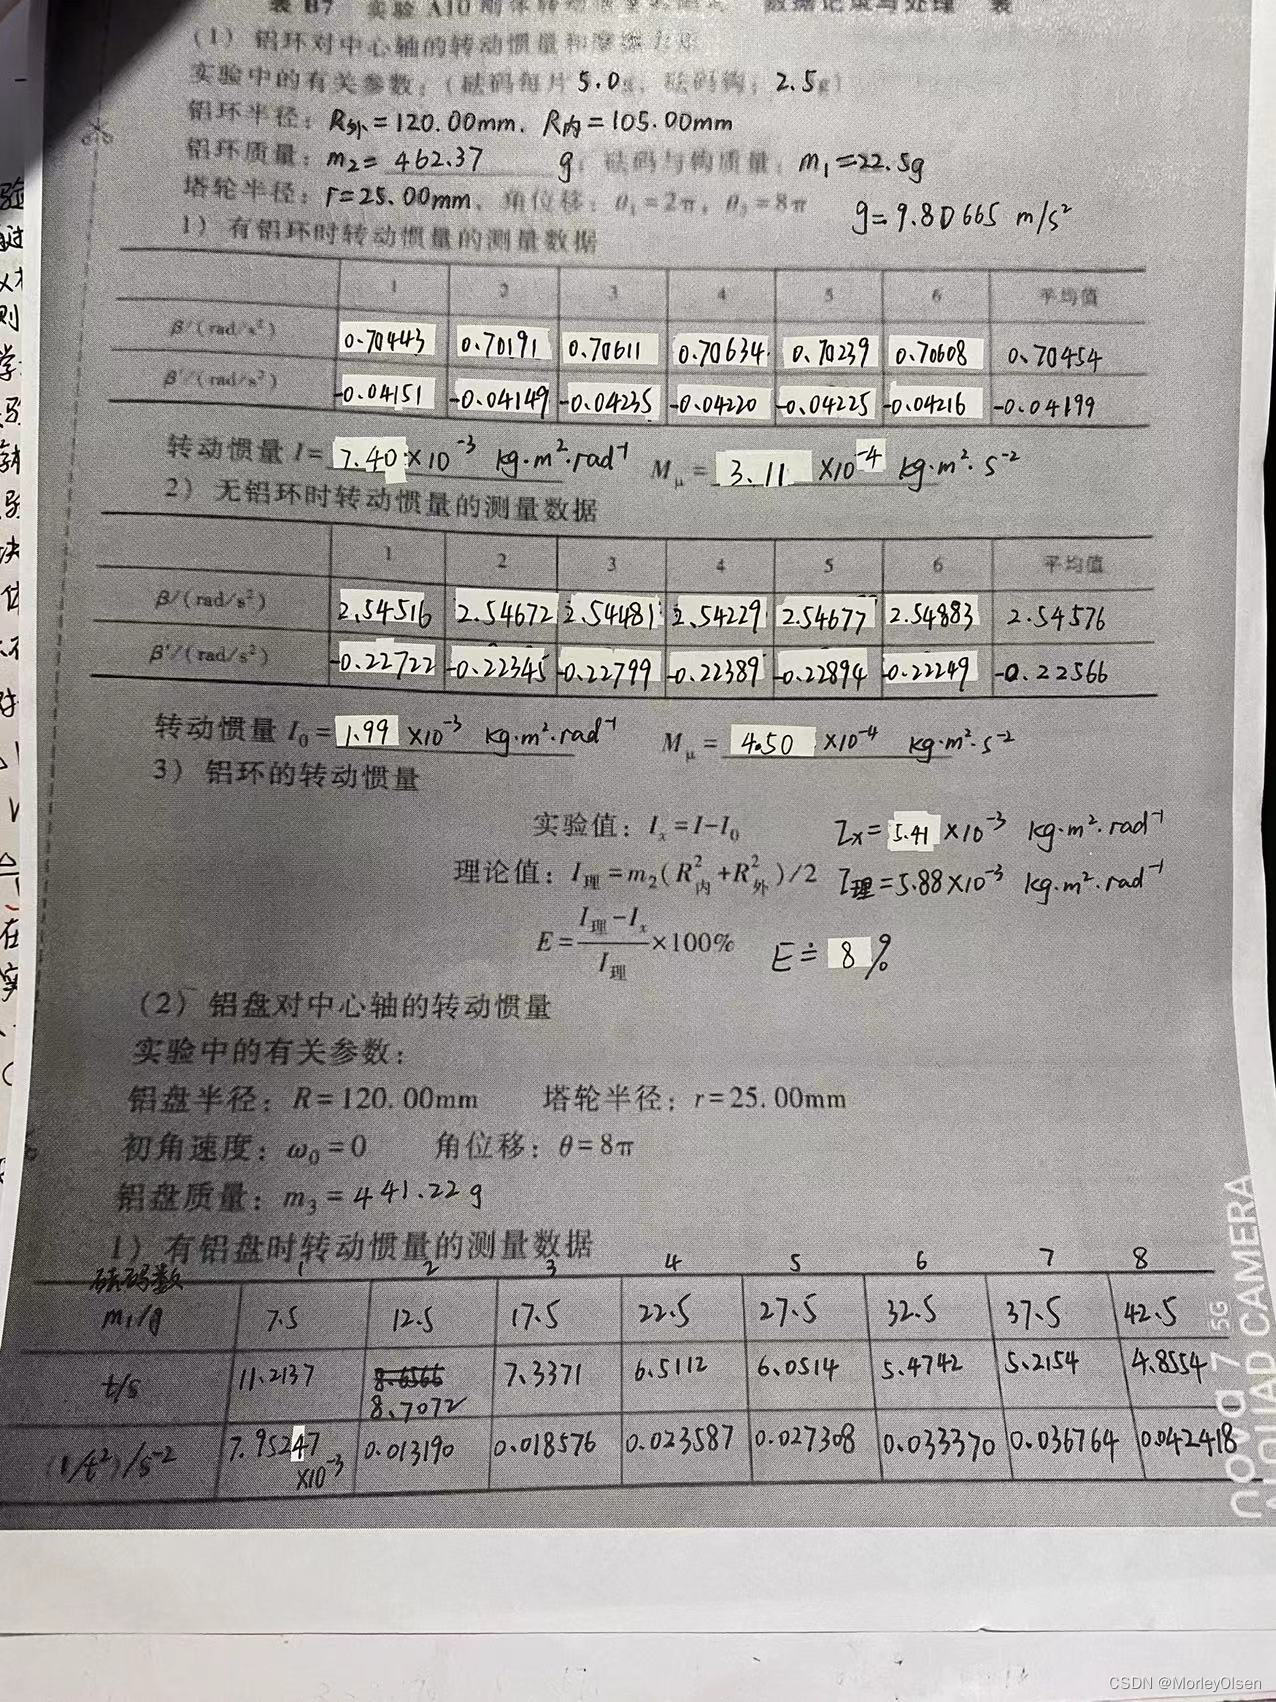 表 B7 实验 A10 刚体转动惯量 数据记录与处理 表
(1) 铝环对中心轴的转动惯量和摩擦力矩
实验中的有关参数：(砝码每片5.0g，砝码钩：2.5g)
铝环半径：R外=120.00mm，R内=105.00mm
铝环质量：m₂= 462.37 g，砝码与钩质量，m₁=22.5g
塔轮半径：r=25.00mm，角位移：θ₁=2π，θ₂=8π g=9.80665 m/s²
1) 有铝环时转动惯量的测量数据
1 2 3 4 5 6 平均值
β/(rad/s²) 0.70443 0.70191 0.70611 0.70634 0.70239 0.70608 0.70454
β'/(rad/s²) -0.04151 -0.04149 -0.04235 -0.04220 -0.04225 -0.04216 -0.04199
转动惯量 I= 7.40×10⁻³ kg·m²·rad⁻¹ Mμ= 3.11 ×10⁻⁴ kg·m²·s⁻²
2) 无铝环时转动惯量的测量数据
1 2 3 4 5 6 平均值
β/(rad/s²) 2.54516 2.54672 2.54481 2.54229 2.54677 2.54883 2.54576
β'/(rad/s²) -0.22722 -0.22345 -0.22799 -0.22389 -0.22894 -0.22249 -0.22566
转动惯量 I₀= 1.99 ×10⁻³ kg·m²·rad⁻¹ Mμ= 4.50 ×10⁻⁴ kg·m²·s⁻²
3) 铝环的转动惯量
实验值：Iₓ=I-I₀ Iₓ=5.41×10⁻³ kg·m²·rad⁻¹
理论值：I理=m₂(R²内+R²外)/2 I理=5.88×10⁻³ kg·m²·rad⁻¹
E=(I理-Iₓ)/I理×100% E≐8%
(2) 铝盘对中心轴的转动惯量
实验中的有关参数：
铝盘半径：R=120.00mm 塔轮半径：r=25.00mm
初角速度：ω₀=0 角位移：θ=8π
铝盘质量：m₃=441.22g
1) 有铝盘时转动惯量的测量数据
砝码数 1 2 3 4 5 6 7 8
m₁/g 7.5 12.5 17.5 22.5 27.5 32.5 37.5 42.5
t/s 11.2137 8.6566 8.7072 7.3371 6.5112 6.0514 5.4742 5.2154 4.8554
(1/t²)/s⁻² 7.95247×10⁻³ 0.013190 0.018576 0.023587 0.027308 0.033370 0.036764 0.042418
nova 7 5G
AI QUAD CAMERA
CSDN @MorleyOlsen